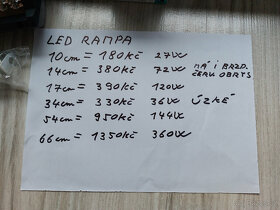 LED RAMPA
10cm = 180Kč 27W
14cm = 380Kč 72W MÁ I BRZD.
ČERV. OBRYS
17cm = 390Kč 120W
34cm = 330Kč 36W ÚZKÉ
54cm = 950Kč 144W
66cm = 1350Kč 360W